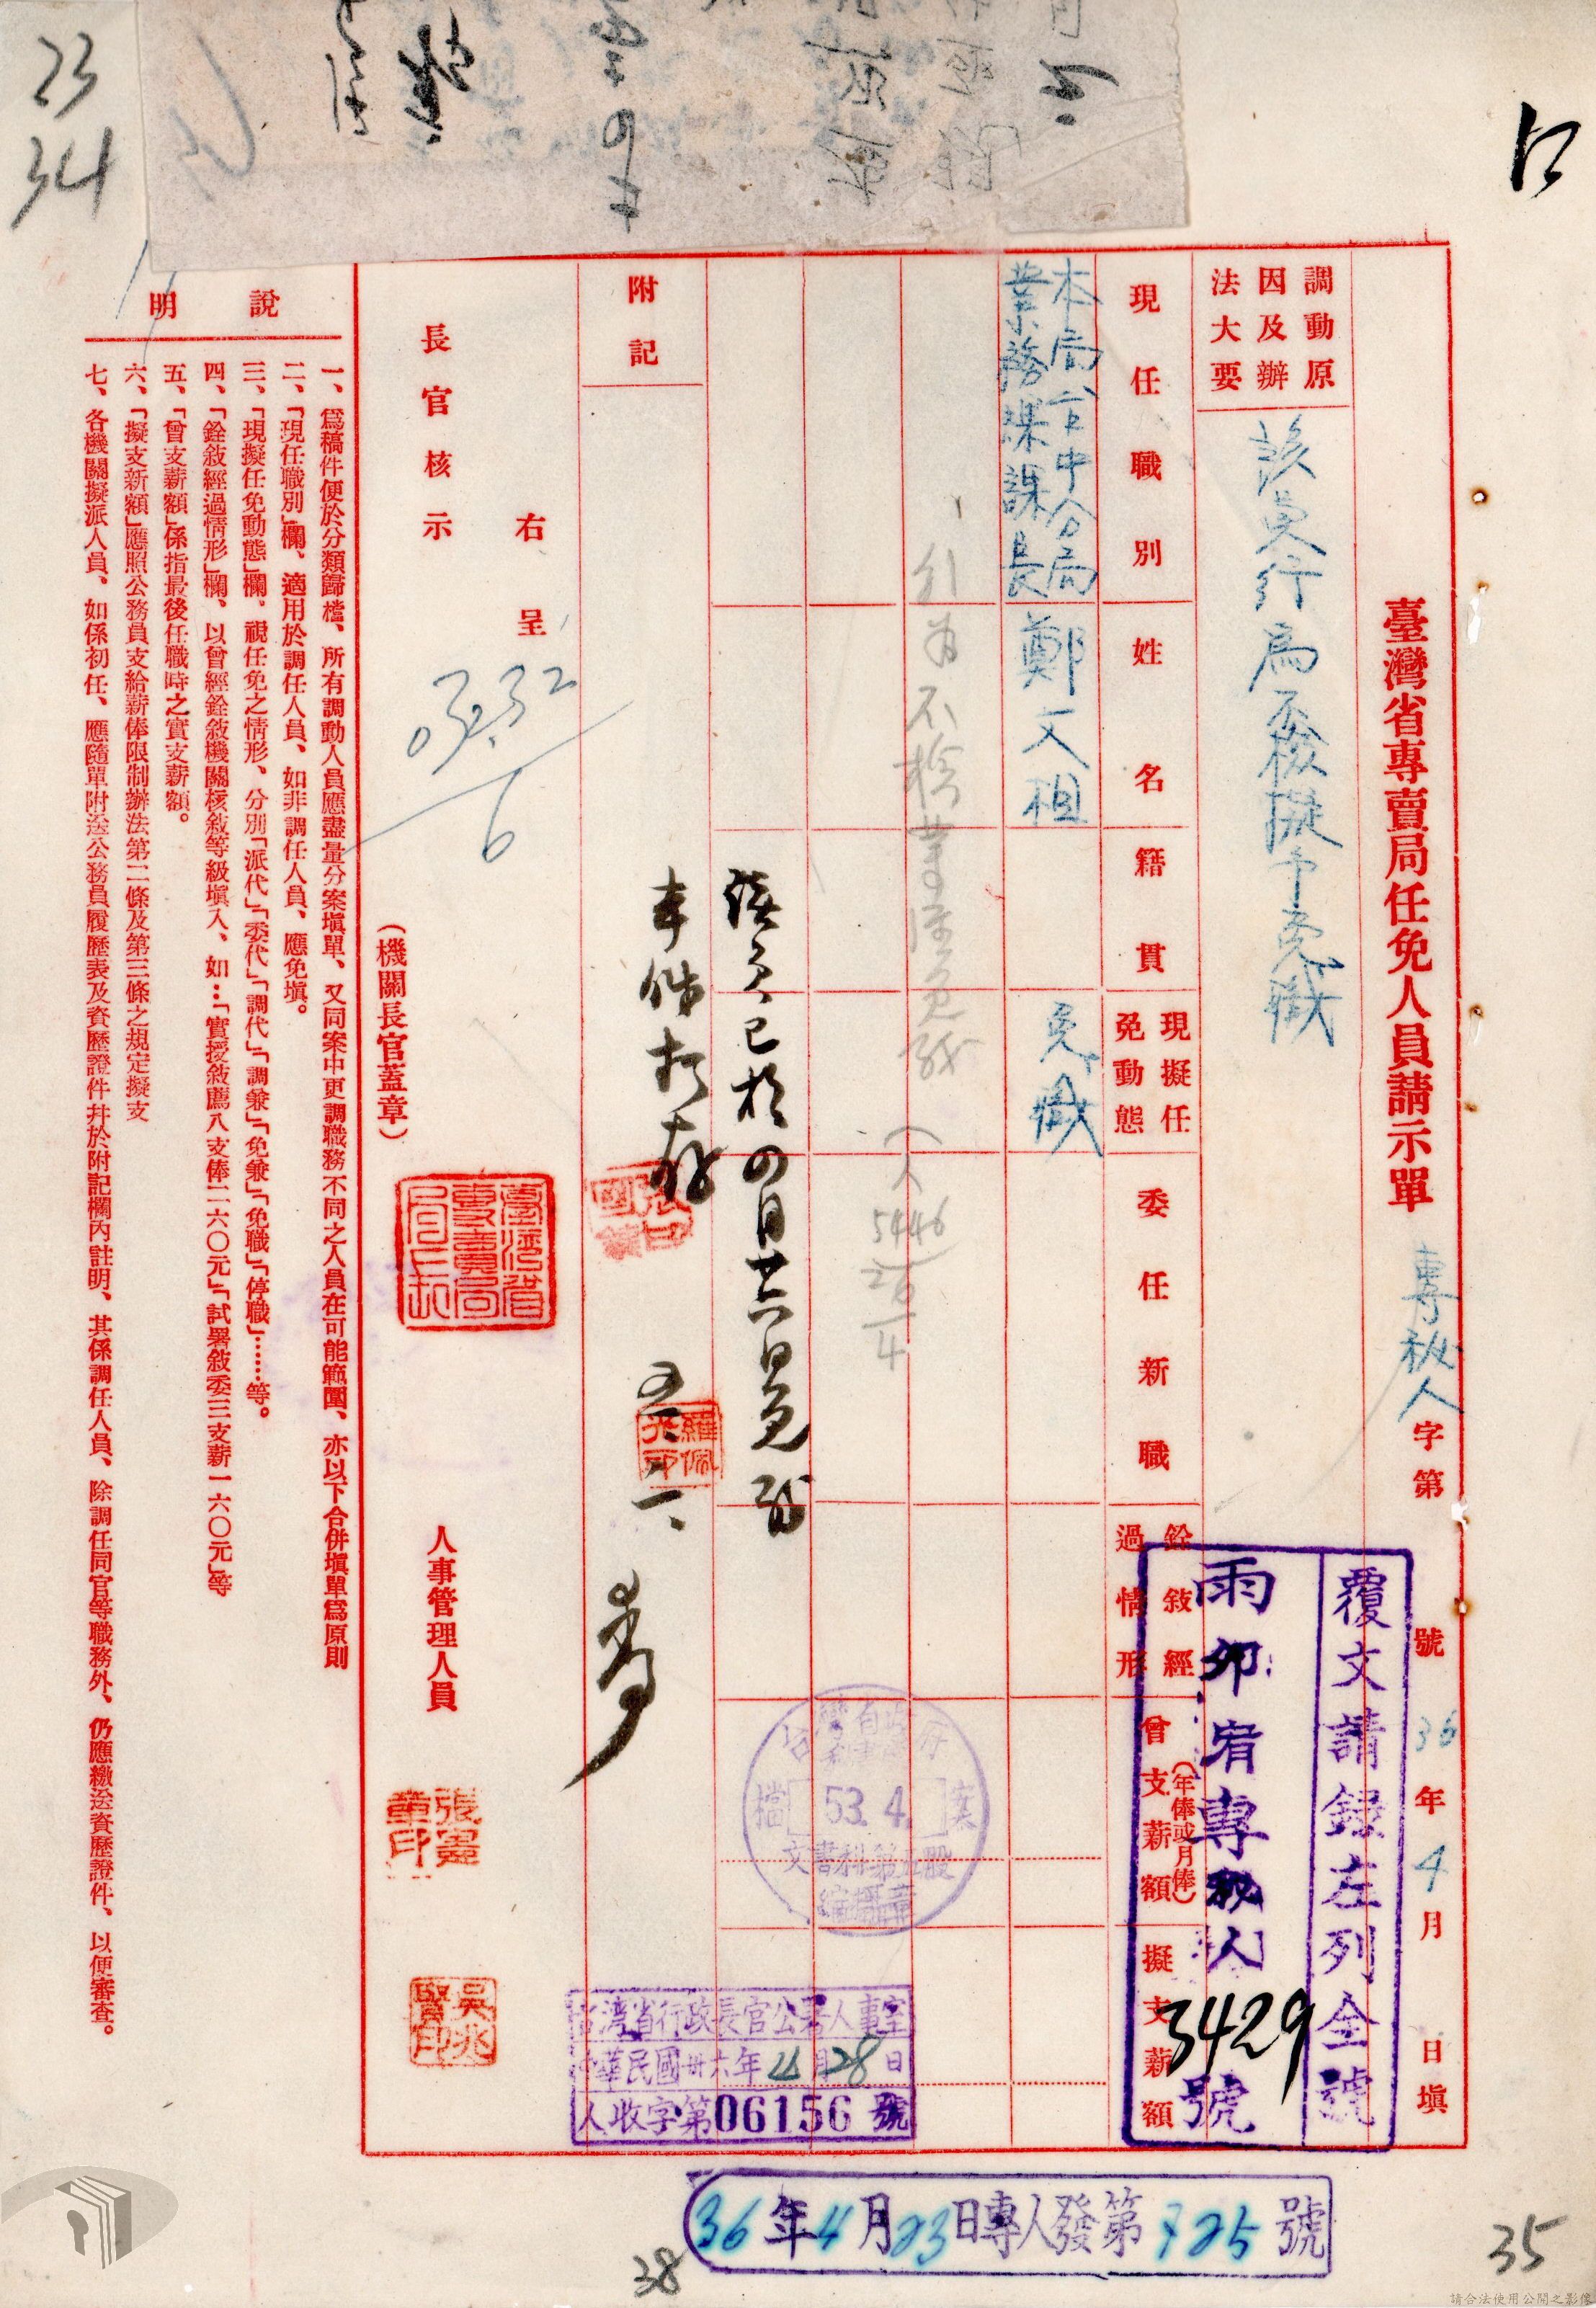 23
34
臺灣省專賣局任免人員請示單
專秘人字第 號 36年4月 日填
覆文請錄左列全號
雨卯宥專秘人3429號
調動原因及辦法大要
該員行為不檢擬予免職
現任職別
姓名
籍貫
現擬任免動態
委任新職
銓敍經過情形
曾支薪額(年俸或月俸)
擬支薪額
本局台中分局
業務課課長
鄭文祖
免職
(人5446 26/4
該員已於四月廿六日免職
本件擬存
附記
右呈
長官核示
(機關長官蓋章)
臺灣省專賣局局長印
人事管理人員
張憲章印
吳兆賢印
羅佩光印
檔 53.4. 案
文書科第五股
台灣省行政長官公署人事室
中華民國卅六年4月28日
人收字第06156號
說明
一、爲稿件便於分類歸檔、所有調動人員應盡量分案塡單、又同案中更調職務不同之人員在可能範圍、亦以下合併塡單爲原則
二、「現任職別」欄、適用於調任人員、如非調任人員、應免塡。
三、「現擬任免動態」欄、視任免之情形、分別「派代」「委代」「調代」「調兼」「免兼」「免職」「停職」……等。
四、「銓敍經過情形」欄、以曾經銓敍機關核敍等級塡入、如…「實授敍薦八支俸二六〇元」「試署敍委三支薪一六〇元」等
五、「曾支薪額」係指最後任職時之實支薪額。
六、「擬支新額」應照公務員支給薪俸限制辦法第二條及第三條之規定擬支
七、各機關擬派人員、如係初任、應隨單附送公務員履歷表及資歷證件幷於附記欄內註明、其係調任人員、除調任同官等職務外、仍應繳送資歷證件、以便審查。
36年4月23日專人發第725號
38
35
請合法使用公開之影像